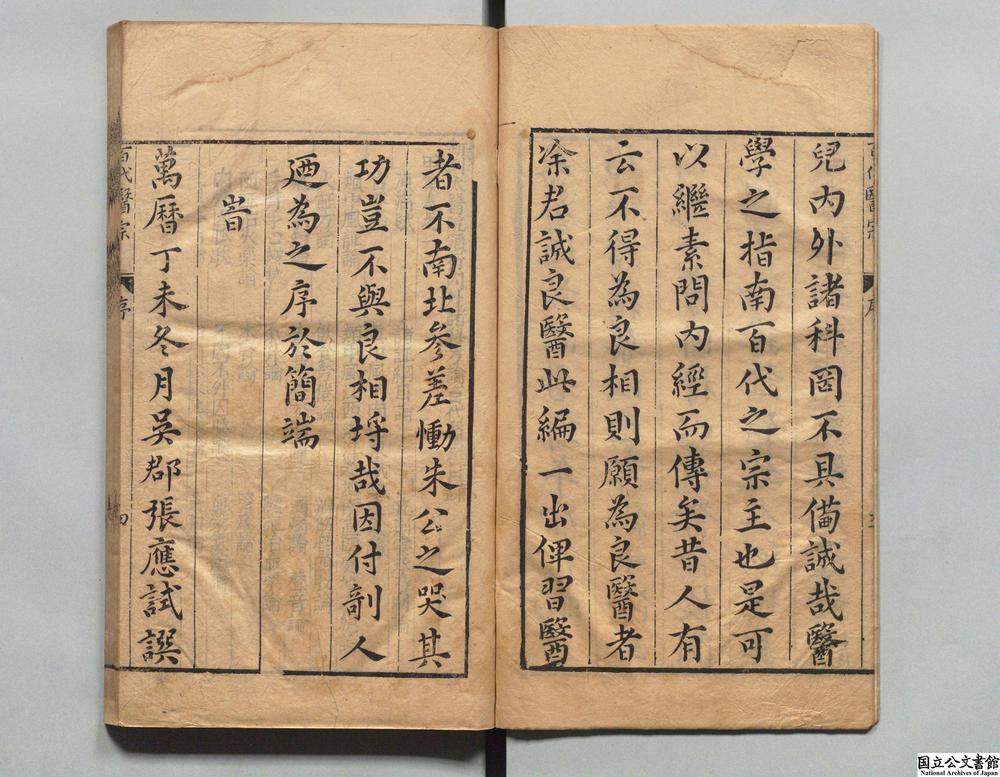 兒內外諸科罔不具備誠哉醫
學之指南百代之宗主也是可
以繼素問內經而傳矣昔人有
云不得為良相則願為良醫者
凃君誠良醫此編一出俾習醫
者不南北參差慟朱公之哭其
功豈不與良相埒哉因付剞人
廼為之序於簡端
旹
萬曆丁未冬月吳郡張應試譔
百代醫宗 序 四
国立公文書館
National Archives of Japan